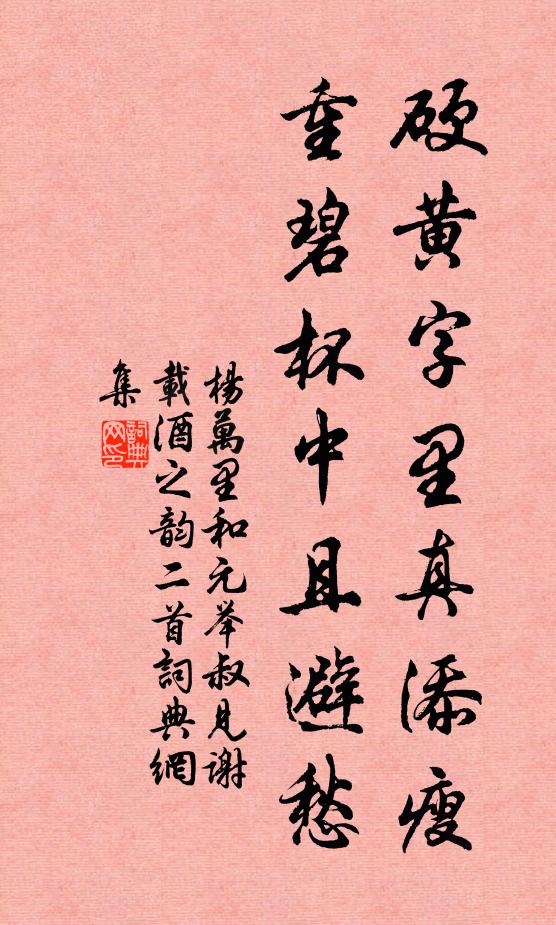 硬黄字里真添瘦
重碧杯中且避愁
楊萬里和元举叔見谢
載酒之韵二首詞典網
集
詞典
网印